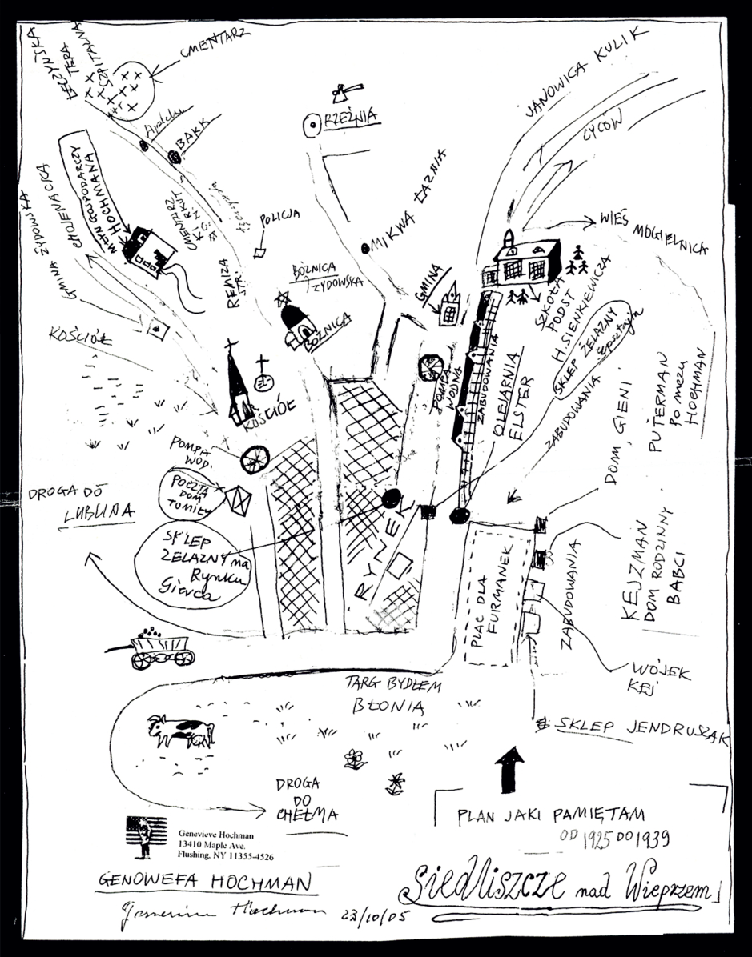 SZPITALNA
CMENTARZ
RZEŹNIA
JANOWICA KULIK
CYCÓW
Apteka
BAKK
MŁYN GOSPODARCZY
HOCHMANA
GMINA
ŻYDOWSKA
CHOJENACKA
REMIZA
STR.
POLICJA
MIKWA ŁAŹNIA
WIEŚ MOGIELNICA
BÓŻNICA
ŻYDOWSKA
BÓŻNICA
GMINA
SZKOŁA
PODST
H. SIENKIEWICZA
KOŚCIÓŁ
KOŚCIÓŁ
POMPA
WODNA
ZABUDOWANIA
OLEJARNIA
ELSTER
SKLEP ŻELAZNY
ZABUDOWANIA
DOM GIENI
PUTERMAN
Po mężu
HOCHMAN
POMPA
WOD.
POCZTA
DOM
DROGA DO
LUBLINA
SKLEP
ŻELAZNY na
Rynku
RYNEK
PLAC DLA
FURMANEK
ZABUDOWANIA
KEJZMAN
DOM RODZINNY
BABCI
WÓJEK
KEJ
TARG BYDŁEM
BŁONIA
SKLEP JENDRUSZAK
DROGA
DO
CHEŁMA
PLAN JAKI PAMIĘTAM
OD 1925 DO 1939
Siedliszcze nad Wieprzem
Genevieve Hochman
13410 Maple Ave.
Flushing, NY 11355-4526
GENOWEFA HOCHMAN
Hochman 23/10/05